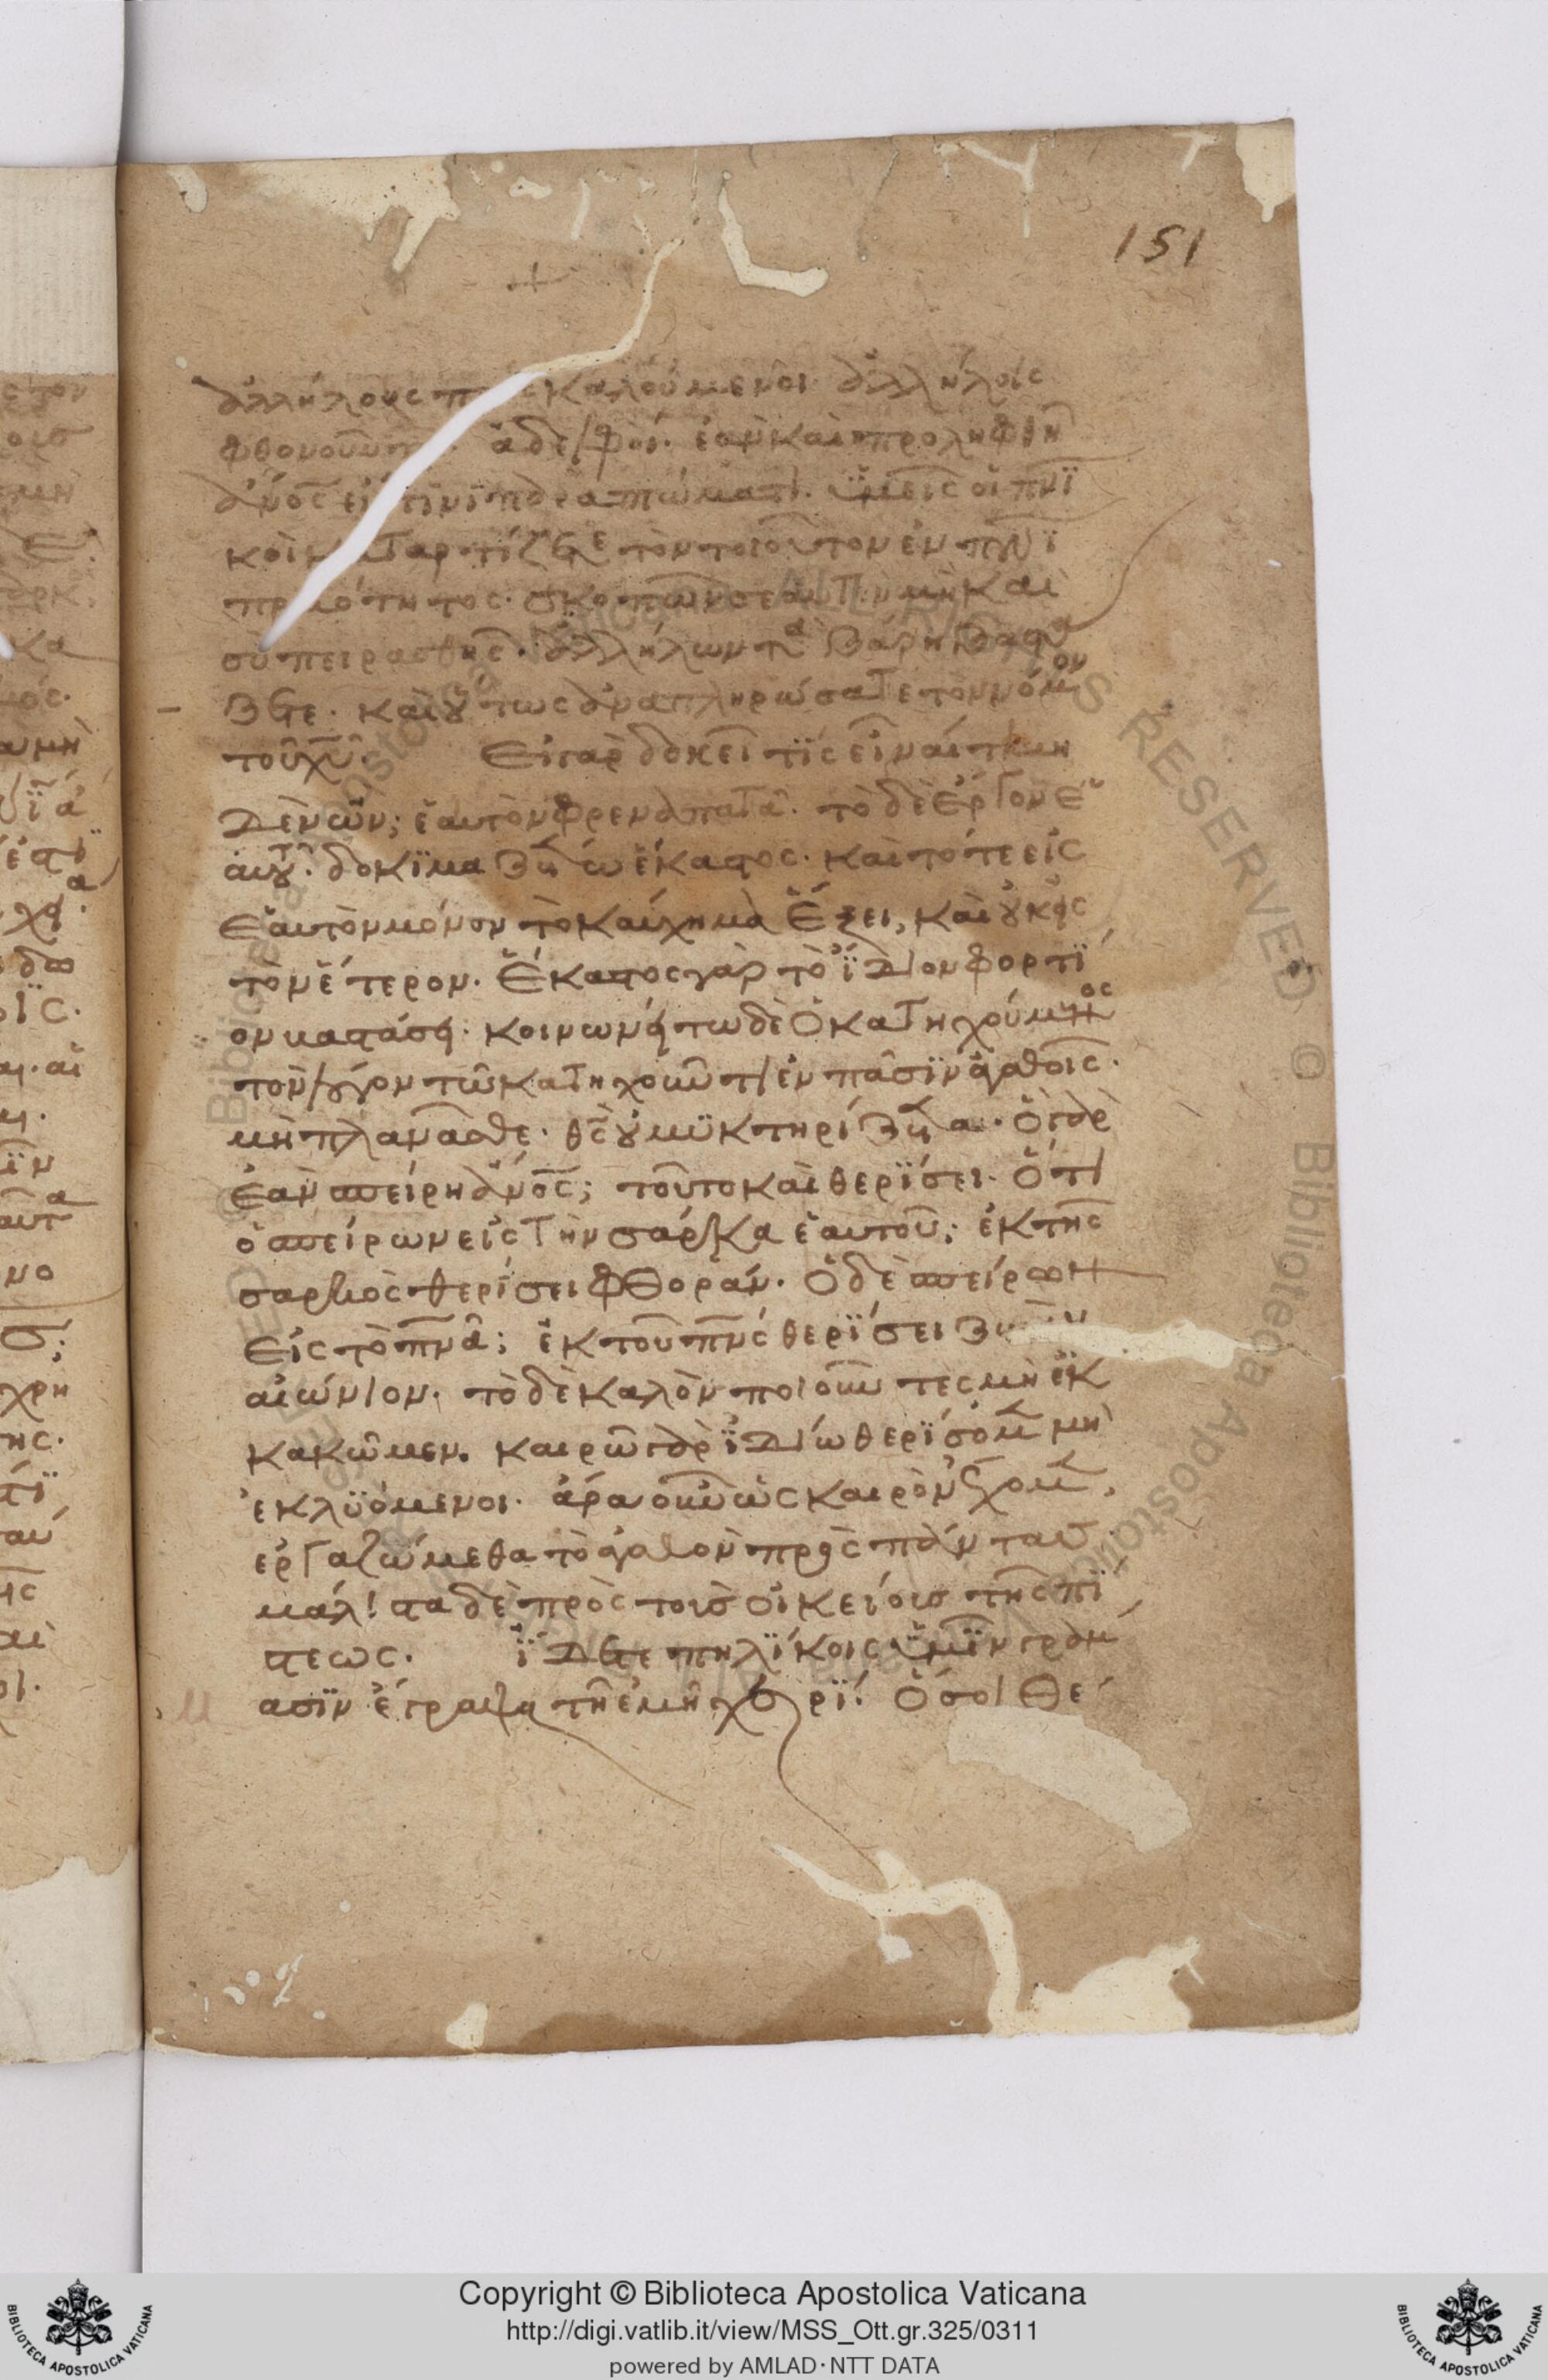 151
ἀλλήλους π καλούμενοι ἀλλήλοις
φθονοῦν ἀδελφοί· ἐὰν καὶ προληφθῆ
ἀνος ἔν τινι παραπτώματι· ὑμεῖς οἱ πνϊ
κοὶ καταρτίζετε τὸν τοιοῦτον ἐν πνι
πραότητος· σκοπῶν σεαυτὸν μὴ καὶ
σὺ πειρασθῆς· ἀλλήλων τὰ βάρη βαστά
ζετε· καὶ οὕτως ἀναπληρώσατε τὸν νόμον
τοῦ χυ Εἰ γὰρ δοκεῖ τὶς εἶναί τι μη
δὲν ὤν; ἑαυτὸν φρεναπατᾶ· τὸ δὲ ἔργον ἑ
αυτοῦ· δοκϊμαζέτω ἕκαστος· καὶ τότε εἰς
ἑαυτὸν μόνον τὸ καύχημα ἕξει, καὶ οὐκ εἰς
τὸν ἕτερον· ἕκαστος γὰρ τὸ ἴδιον φορτί
ον βαστάσει· κοινωνείτω δὲ ὁ κατηχούμενος
τὸν λόγον τῶ κατηχοῦντι ἐν πᾶσϊν ἀγαθοῖς·
μὴ πλανᾶσθε· θς οὐ μϋκτηρίζεται· ὃ γὰρ
ἐὰν σπείρη ἀνος; τοῦτο καὶ θερΐσει· ὅτι
ὁ σπείρων εἰς τὴν σάρκα ἑαυτοῦ; ἐκ τῆς
σαρκὸς θερίσει φθοράν· ὁ δὲ σπείρων
εἰς τὸ πνα; ἐκ τοῦ πνς θερΐσει ζωὴν
αἰώνιον· τὸ δὲ καλὸν ποιοῦντες μὴ ἐκ
κακῶμεν· καιρῶ γὰρ ἰδίω θερΐσομεν μὴ
ἐκλϋόμενοι· ἄρα οὖν ὡς καιρὸν ἔχομεν,
ἐργαζώμεθα τὸ ἀγαθὸν πρὸς πάντας
μάλιστα δὲ πρὸς τοὺς οἰκείους τῆς πί
στεως· ἴδετε πηλΐκοις ὑμῖν γράμ
ασϊν ἔγραψα τῆ ἐμῆ χειρΐ· ὅσοι θέ
Copyright © Biblioteca Apostolica Vaticana
http://digi.vatlib.it/view/MSS_Ott.gr.325/0311
powered by AMLAD·NTT DATA